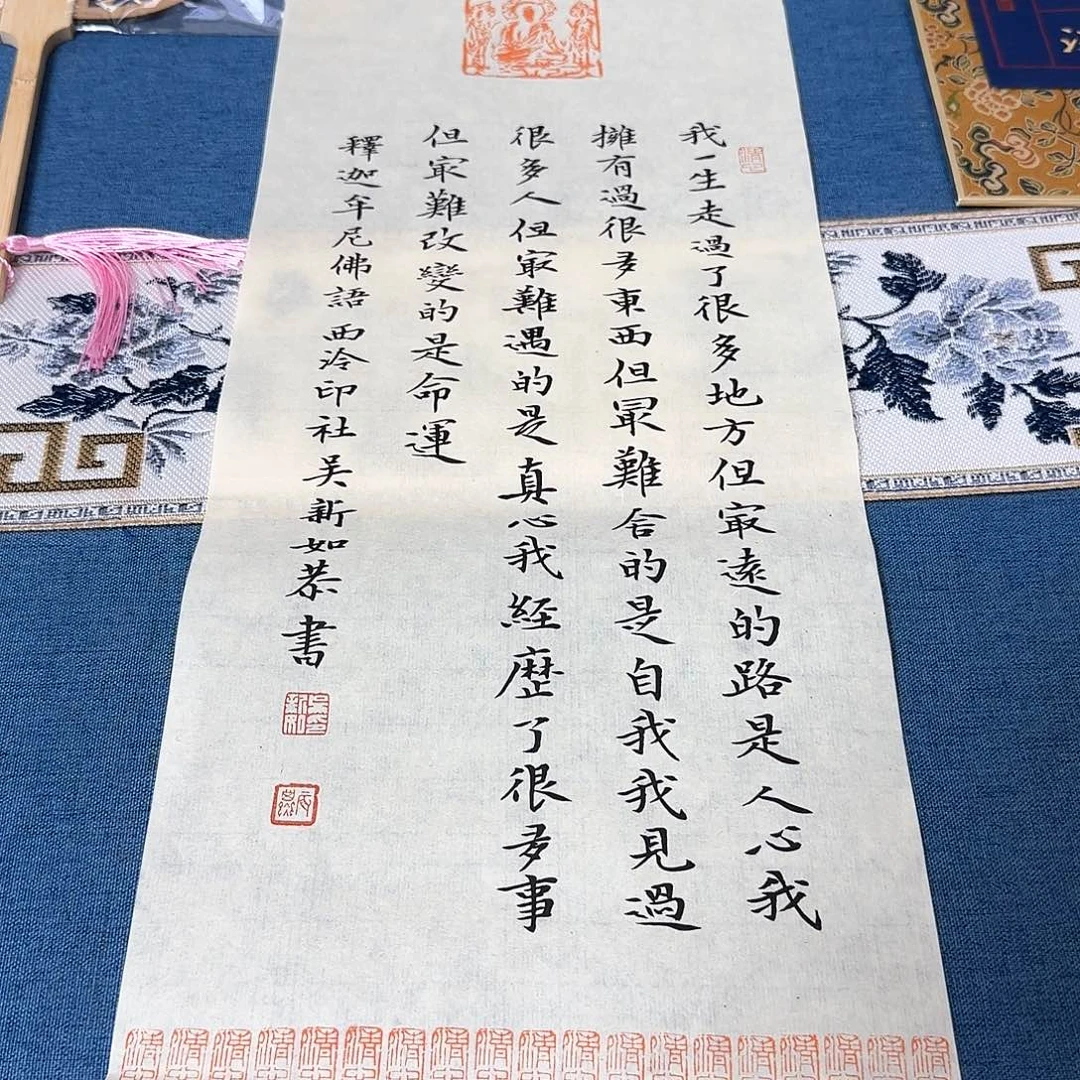 我一生走過了很多地方但㝡遠的路是人心我
擁有過很多東西但㝡難舍的是自我我見過
很多人但㝡難遇的是真心我経歷了很多事
但㝡難改變的是命運
釋迦牟尼佛語西泠印社吴新如恭書